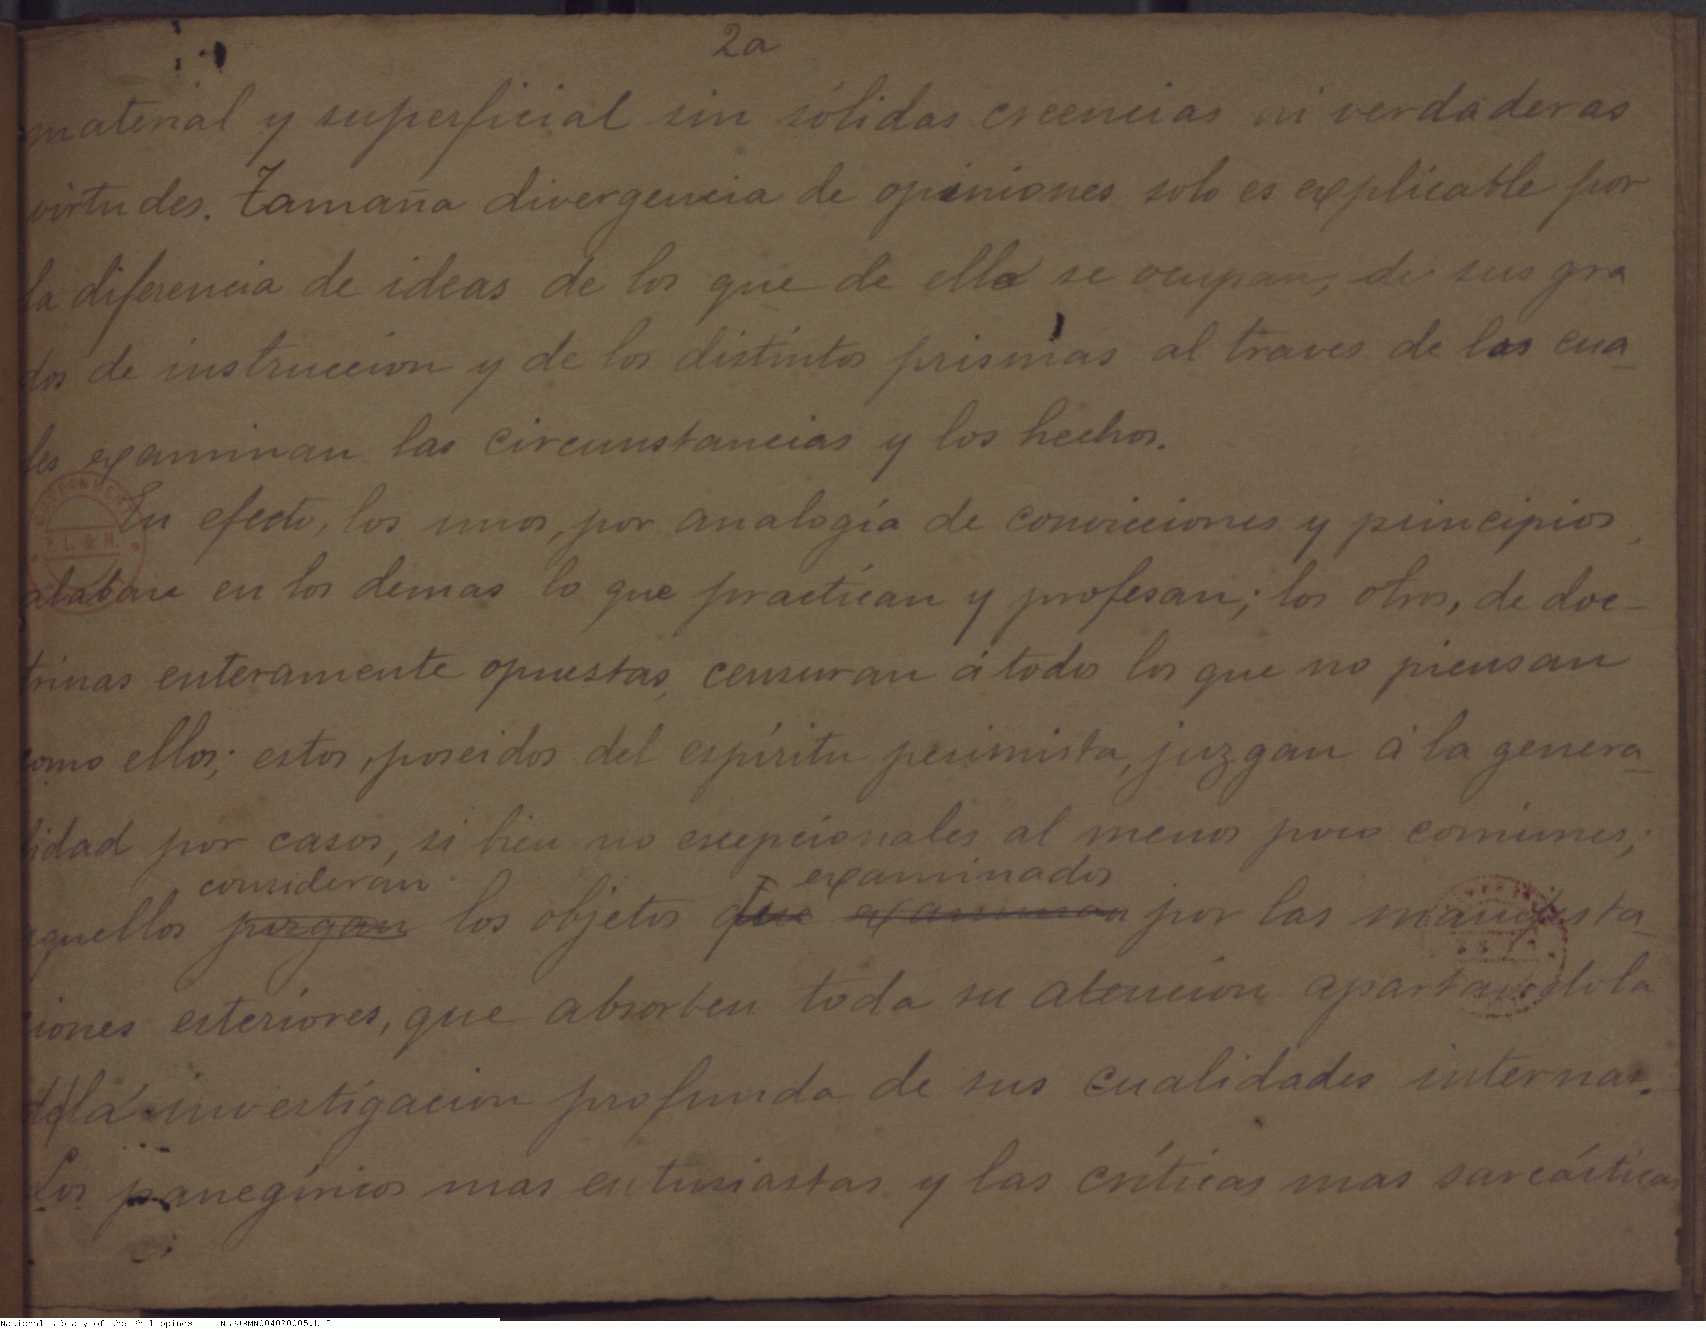 2a
material y superficial sin sólidas creencias ni verdaderas
virtudes. Tamaña divergencia de opiniones solo es explicable por
la diferencia de ideas de los que de ella se ocupan, de sus gra
dos de instruccion y de los distintos prismas al traves de las cua-
les examinan las circunstancias y los hechos.
En efecto, los unos, por analogía de convicciones y principios,
alaban en los demas lo que practican y profesan; los otros, de doc-
trinas enteramente opuestas, censuran á todos los que no piensan
como ellos; estos, poseidos del espíritu pesimista, juzgan á la genera-
lidad por casos, si bien no excepcionales al menos poco comunes;
consideran examinados
aquellos juzgan los objetos que examinan por las manifesta-
ciones esteriores, que absorben toda su atencion apartandola
de la investigacion profunda de sus cualidades internas.
Los panegíricos mas entusiastas y las críticas mas sarcásticas
P.L.& M.
National Library of the Philippines